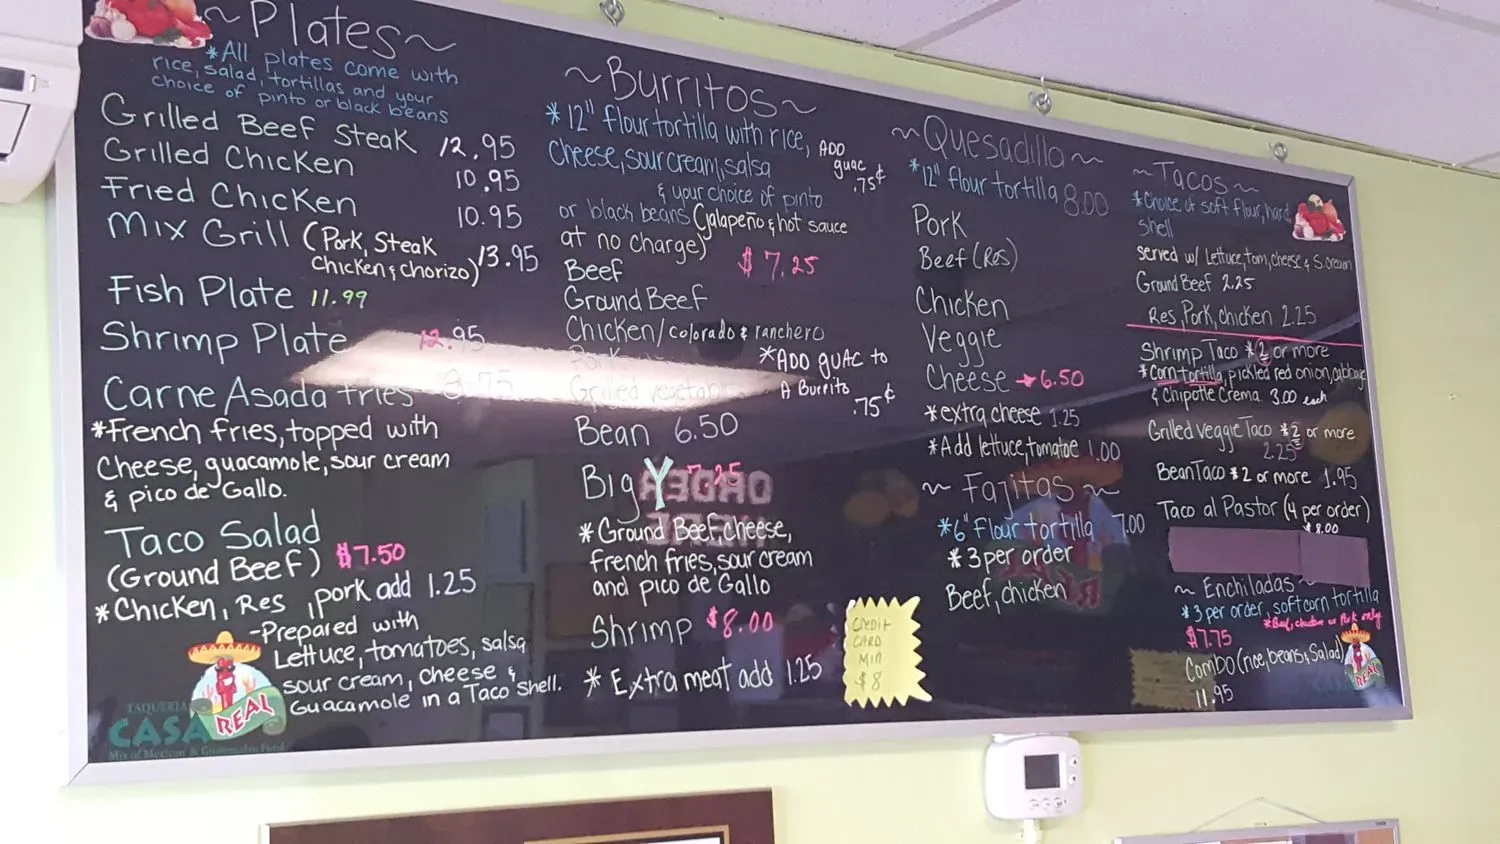 ~Plates~
*All plates come with
rice, salad, tortillas and your
choice of pinto or black beans
Grilled Beef Steak 12.95
Grilled Chicken 10.95
Fried Chicken 10.95
Mix Grill (Pork, Steak
Chicken & Chorizo) 13.95
Fish Plate 11.99
Shrimp Plate 12.95
Carne Asada fries
*French fries, topped with
Cheese, guacamole, sour cream
& pico de Gallo.
Taco Salad
(Ground Beef) $7.50
*Chicken, Res, pork add 1.25
-Prepared with
Lettuce, tomatoes, salsa
sour cream, cheese &
Guacamole in a Taco shell.
TAQUERIA
CASA REAL
Mix of Mexican & Guatemalan Food
~Burritos~
*12" flour tortilla with rice,
Cheese, sour cream, salsa
& your choice of pinto
or black beans (jalapeño & hot sauce
at no charge)
ADD
guac
.75¢
$7.25
Beef
Ground Beef
Chicken/colorado & ranchero
Pork
Grilled vegetables
*ADD guac to
A Burrito
.75¢
Bean 6.50
Big Y 7.25
*Ground Beef, cheese,
french fries, sour cream
and pico de Gallo
Shrimp $8.00
*Extra meat add 1.25
CREDIT
CARD
MIN
$8
~Quesadillo~
*12" flour tortilla 8.00
Pork
Beef (Res)
Chicken
Veggie
Cheese → 6.50
*extra cheese 1.25
*Add lettuce, tomatoe 1.00
~Fajitas~
*6" Flour tortilla 7.00
*3 per order
Beef, chicken
ORDER
HERE
~Tacos~
*Choice of soft flour, hard
shell
served w/ Lettuce, tom, cheese & s. cream
Ground Beef 2.25
Res, Pork, chicken 2.25
Shrimp Taco *2 or more
*Corn tortilla, pickled red onion, cabbage
& Chipotle Crema 3.00 each
Grilled Veggie Taco *2 or more
2.25
Bean Taco *2 or more 1.95
Taco al Pastor (4 per order)
$8.00
~Enchiladas~
*3 per order, soft corn tortilla
$7.75 *Beef, chicken or Pork only
Combo (rice, beans & Salad)
11.95
REAL